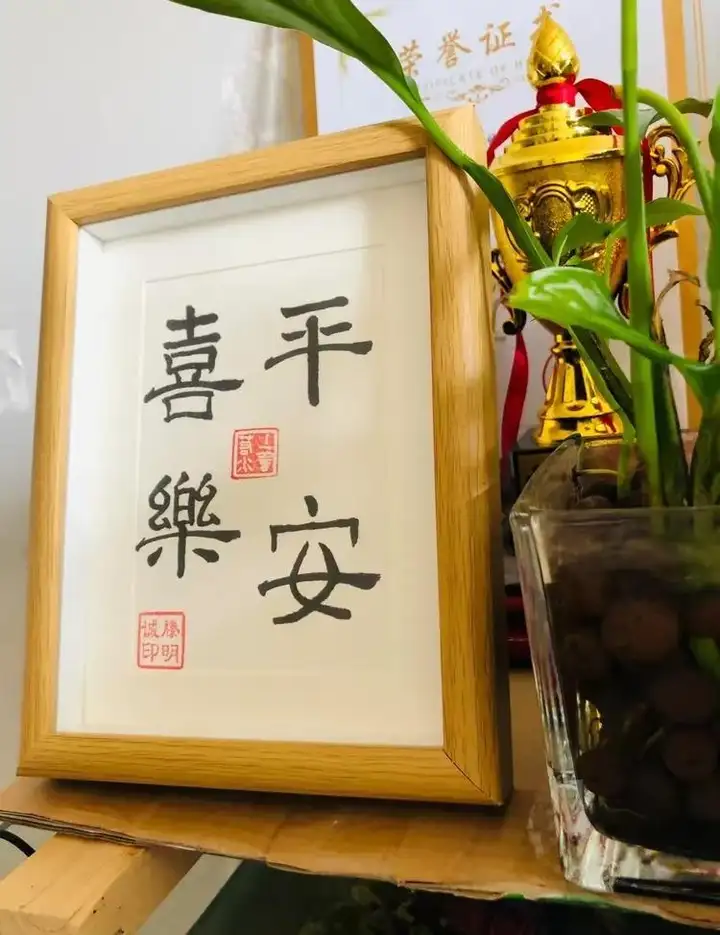 平安
喜樂
滕明
誠印
荣誉证书